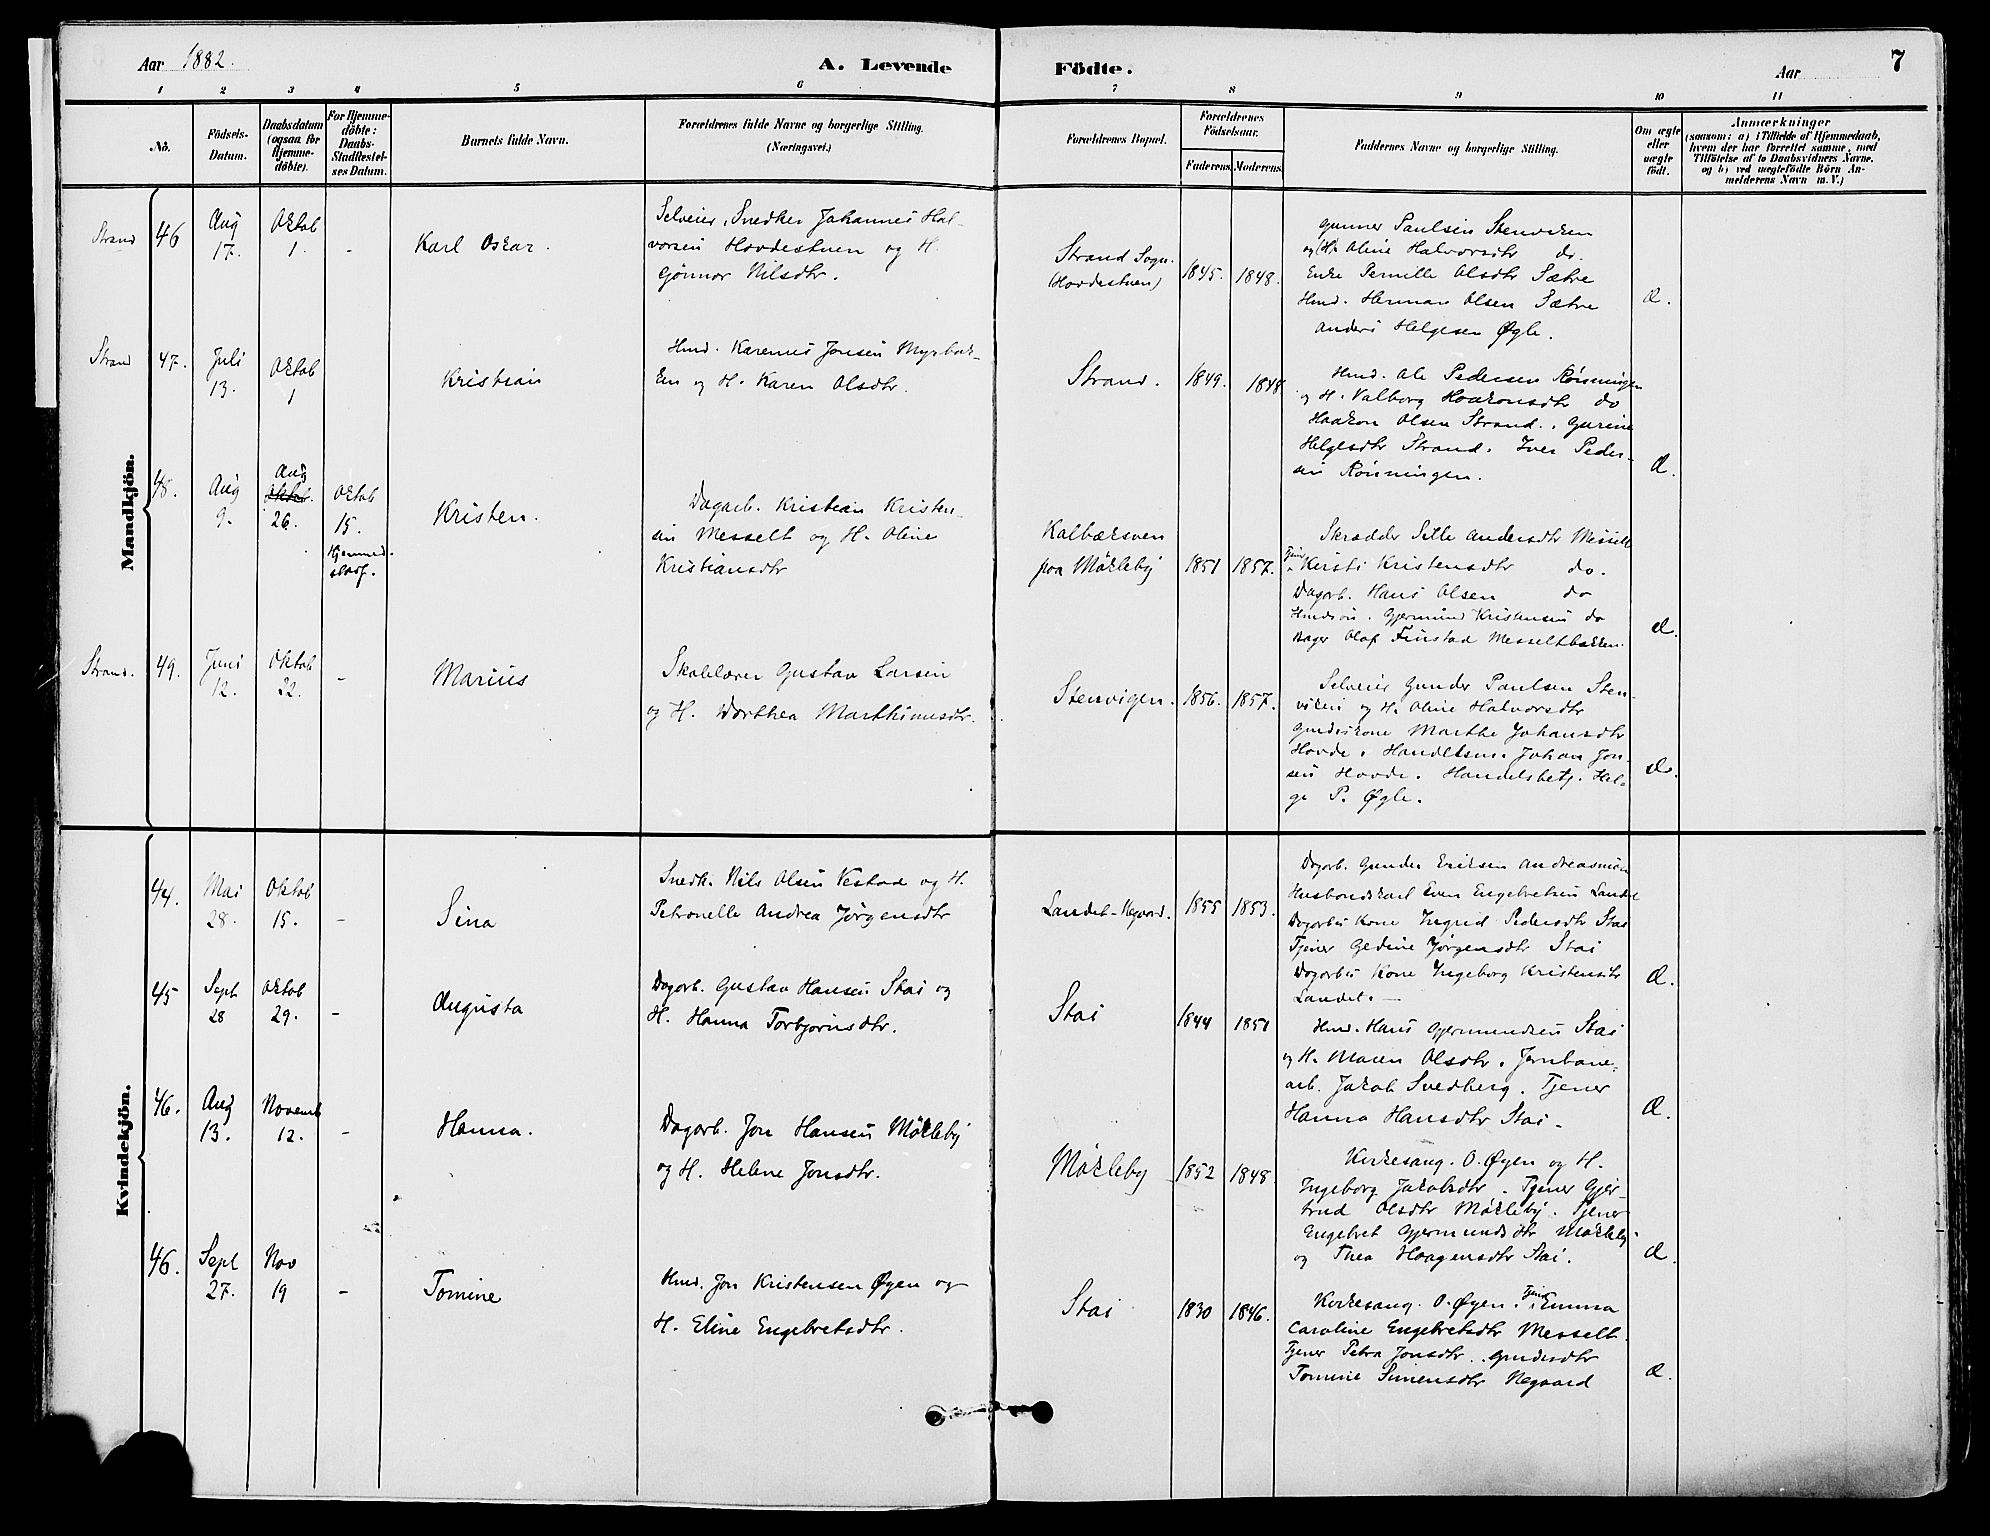 Aar 1882.
A. Levende Födte.
Aar
7
1 2 3 4 5 6 7 8 9 10 11
No.
Födsels-
Datum.
Daabsdatum
(ogsaa for
Hjemme-
döbte).
For Hjemme-
döbte:
Daabs-
Stadfæstel-
ses Datum.
Barnets fulde Navn.
Forældrenes fulde Navne og borgerlige Stilling.
(Næringsvei.)
Forældrenes Bopæl.
Forældrenes
Födselsaar.
Faderens. Moderens.
Faddernes Navne og borgerlige Stilling.
Om ægte
eller
uægte
födt.
Anmærkninger
(saasom: a) i Tilfælde af Hjemmedaab,
hvem der har forrettet samme, med
Tilföielse af to Daabsvidners Navne,
og b) ved uægtefödte Börn An-
melderens Navn m. V.)
Mandkjön.
Strand 46
Aug
17.
Oktob
1.
-
Karl Oskar.
Selveier, Snedker Johannes Hal-
vorsen Hovdestuen og H.
Gjönnor Nilsdtr.
Strand Sogn.
(Hovdestuen)
1845. 1848.
Gunner Paulsen Stenviken
og H. Oline Halvorsdtr do.
Enke Pernille Olsdtr Sætre
Hmd. Herman Olsen Sætre
Anders Helgesen Øgle.
Æ.
Strand 47.
Juli
13.
Oktob
1
Kristian
Hmd. Karenus Jonsen Myrbak-
ken og H. Karen Olsdtr.
Strand.
1849. 1848
Hmd. Ole Pedersen Rönningen
og H. Valborg Haakonsdtr do
Haakon Olsen Strand. Gurine
Helgesdtr Strand. Iver Peder-
sen Rönningen.
Æ.
48.
Aug
9.
Aug
Oktob.
26.
Oktob
15.
Hjemmed.
stadf.
Kristen.
Dagarb. Kristian Kristen-
sen Messelt og H. Oline
Kristiansdtr
Kalbæksven
paa Mökleby
1851 1857.
Skrædder Sille Andersdtr Messelt
Tjener Kirsti Kristensdtr do.
Dagarb. Hans Olsen do
Hmdsön. Gjermund Kristensen do
Bager Olaf Finstad Messeltbakken.
Æ.
Strand. 49.
Juni
12.
Oktob
22.
-
Marius
Skolelærer Gustav Larsen
og H. Dorthea Marthinusdtr.
Stenvigen.
1856. 1857.
Selveier Gunder Paulsen Sten-
viken og H. Oline Halvorsdtr
Gmdskone Marthe Johansdtr
Hovde. Handelsm. Johan Jon-
sen Hovde. Handelsbetj. Hel-
ge P. Øgle.
Æ.
Kvindekjön.
44.
Mai
28.
Oktob
15.
-
Sina
Snedk. Nils Olsen Vestad og H.
Petronelle Andrea Jörgensdtr
Landet-Negaard.
1855 1853.
Dagarb. Gunder Eriksen Andreasmoen
Husbondskarl Even Engebretsen Landet
Dagarbs Kone Ingrid Pedersdtr Stai
Tjener Gedine Jörgensdtr Stai
Dagarbs Kone Ingeborg Kristensdtr
Landet. —
Æ.
45
Sept
28
Oktob
29.
-
Augusta
Dagarb. Gustav Hansen Stai og
H. Hanna Torbjörnsdtr.
Stai
1844 1851
Hmd. Hans Gjermundsen Stai
og H. Maren Olsdtr. Jernbane-
arb. Jakob Svedberg. Tjener
Hanna Hansdtr Stai.
Æ.
46.
Aug
13.
Novemb
12.
-
Hanna.
Dagarb. Jon Hansen Mökleby
og H. Helene Jonsdtr.
Mökleby
1852 1848.
Kirkesang. O. Øyen og H.
Ingeborg Jakobsdtr. Tjener Gjer-
trud Olsdtr Mökleby. Tjener
Engebret Gjermundsdtr Mökleby
og Thea Haagensdtr Stai.
Æ.
46.
Sept
27.
Nov
19
-
Tomine
Hmd. Jon Kristensen Øyen og
H. Eline Engebretsdtr.
Stai
1830 1846.
Kirkesang. O. Øyen. Tjener Emma
Caroline Engebretsdtr Messelt.
Tjener Petra Jonsdtr. Gmdsdtr
Tomine Simensdtr Negaard
Æ.